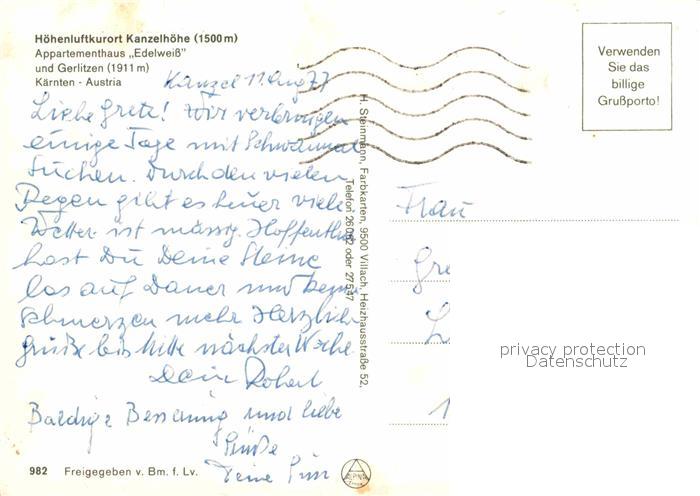 Höhenluftkurort Kanzelhöhe (1500 m)
Appartementhaus „Edelweiß"
und Gerlitzen (1911 m)
Kärnten - Austria
Kanzel 11. Aug 77
Liebe Grete! Wir verbringen
einige Tage mit Schwammerl
suchen. Durch den vielen
Regen gibt es heuer viele
Wetter ist mässig. Hoffentlich
hast Du Deine Steine
los auf Dauer und keine
Schmerzen mehr Herzliche
Grüße bis Mitte nächster Woche
Dein Robert
Baldige Besserung und liebe
Grüße
Deine
982 Freigegeben v. Bm. f. Lv.
H. Steinmann, Farbkarten, 9500 Villach, Heizhausstraße 52,
Telefon 26082 oder 27547
Verwenden
Sie das
billige
Grußporto!
Frau
Gre
L
1
privacy protection
Datenschutz